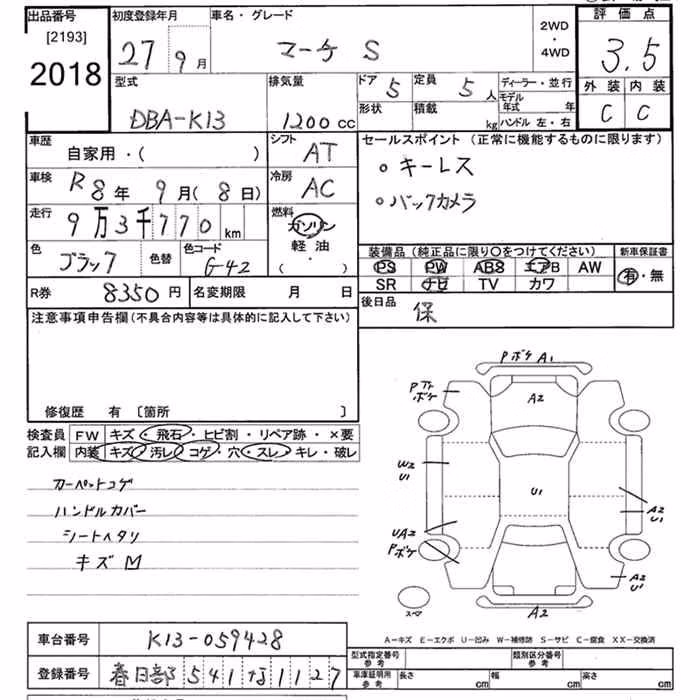 出品番号 初度登録年月 車名・グレード 評価点
[2193] 27 9月 マーチ S 2WD・4WD 3.5
2018
型式 排気量 ドア 5 定員 5人 ディーラー・並行 外装 内装
形状 積載 kg モデル年式 年 C C
DBA-K13 1200cc ハンドル 左・右
車歴 自家用・( ) シフト AT セールスポイント (正常に機能するものに限ります)
車検 R8年9月(8日) 冷房 AC 。キーレス
走行 9万3千770km 燃料 ガソリン 。バックカメラ
軽油・( )
色 ブラック 色替 色コード G42 装備品 (純正品に限り〇をつけてください) 新車保証書
PS PW ABS エアB AW 有・無
R券 8350円 名変期限 月 日 SR ナビ TV カワ
後日品 保
注意事項申告欄(不具合内容等は具体的に記入して下さい)
Pボケ A1
A2
修復歴 有 〔箇所 〕
検査員 FW キズ・飛石・ヒビ割・リペア跡・×要
記入欄 内装 キズ・汚レ・コゲ・穴・スレ・キレ・破レ
W2
U1
カーペットコゲ
U1
ハンドルカバー
A2
U1
シートヘタリ
UA2
Pボケ
キズM
A2
スペア
A2
A-キズ E-エクボ U-凹み W-補修跡 S-サビ C-腐食 XX-交換済
車台番号 K13-059428 型式指定番号 参考 類別区分番号 参考
登録番号 春日部 541 な 1127 車庫証明用 参考 長さ cm 幅 cm 高さ cm